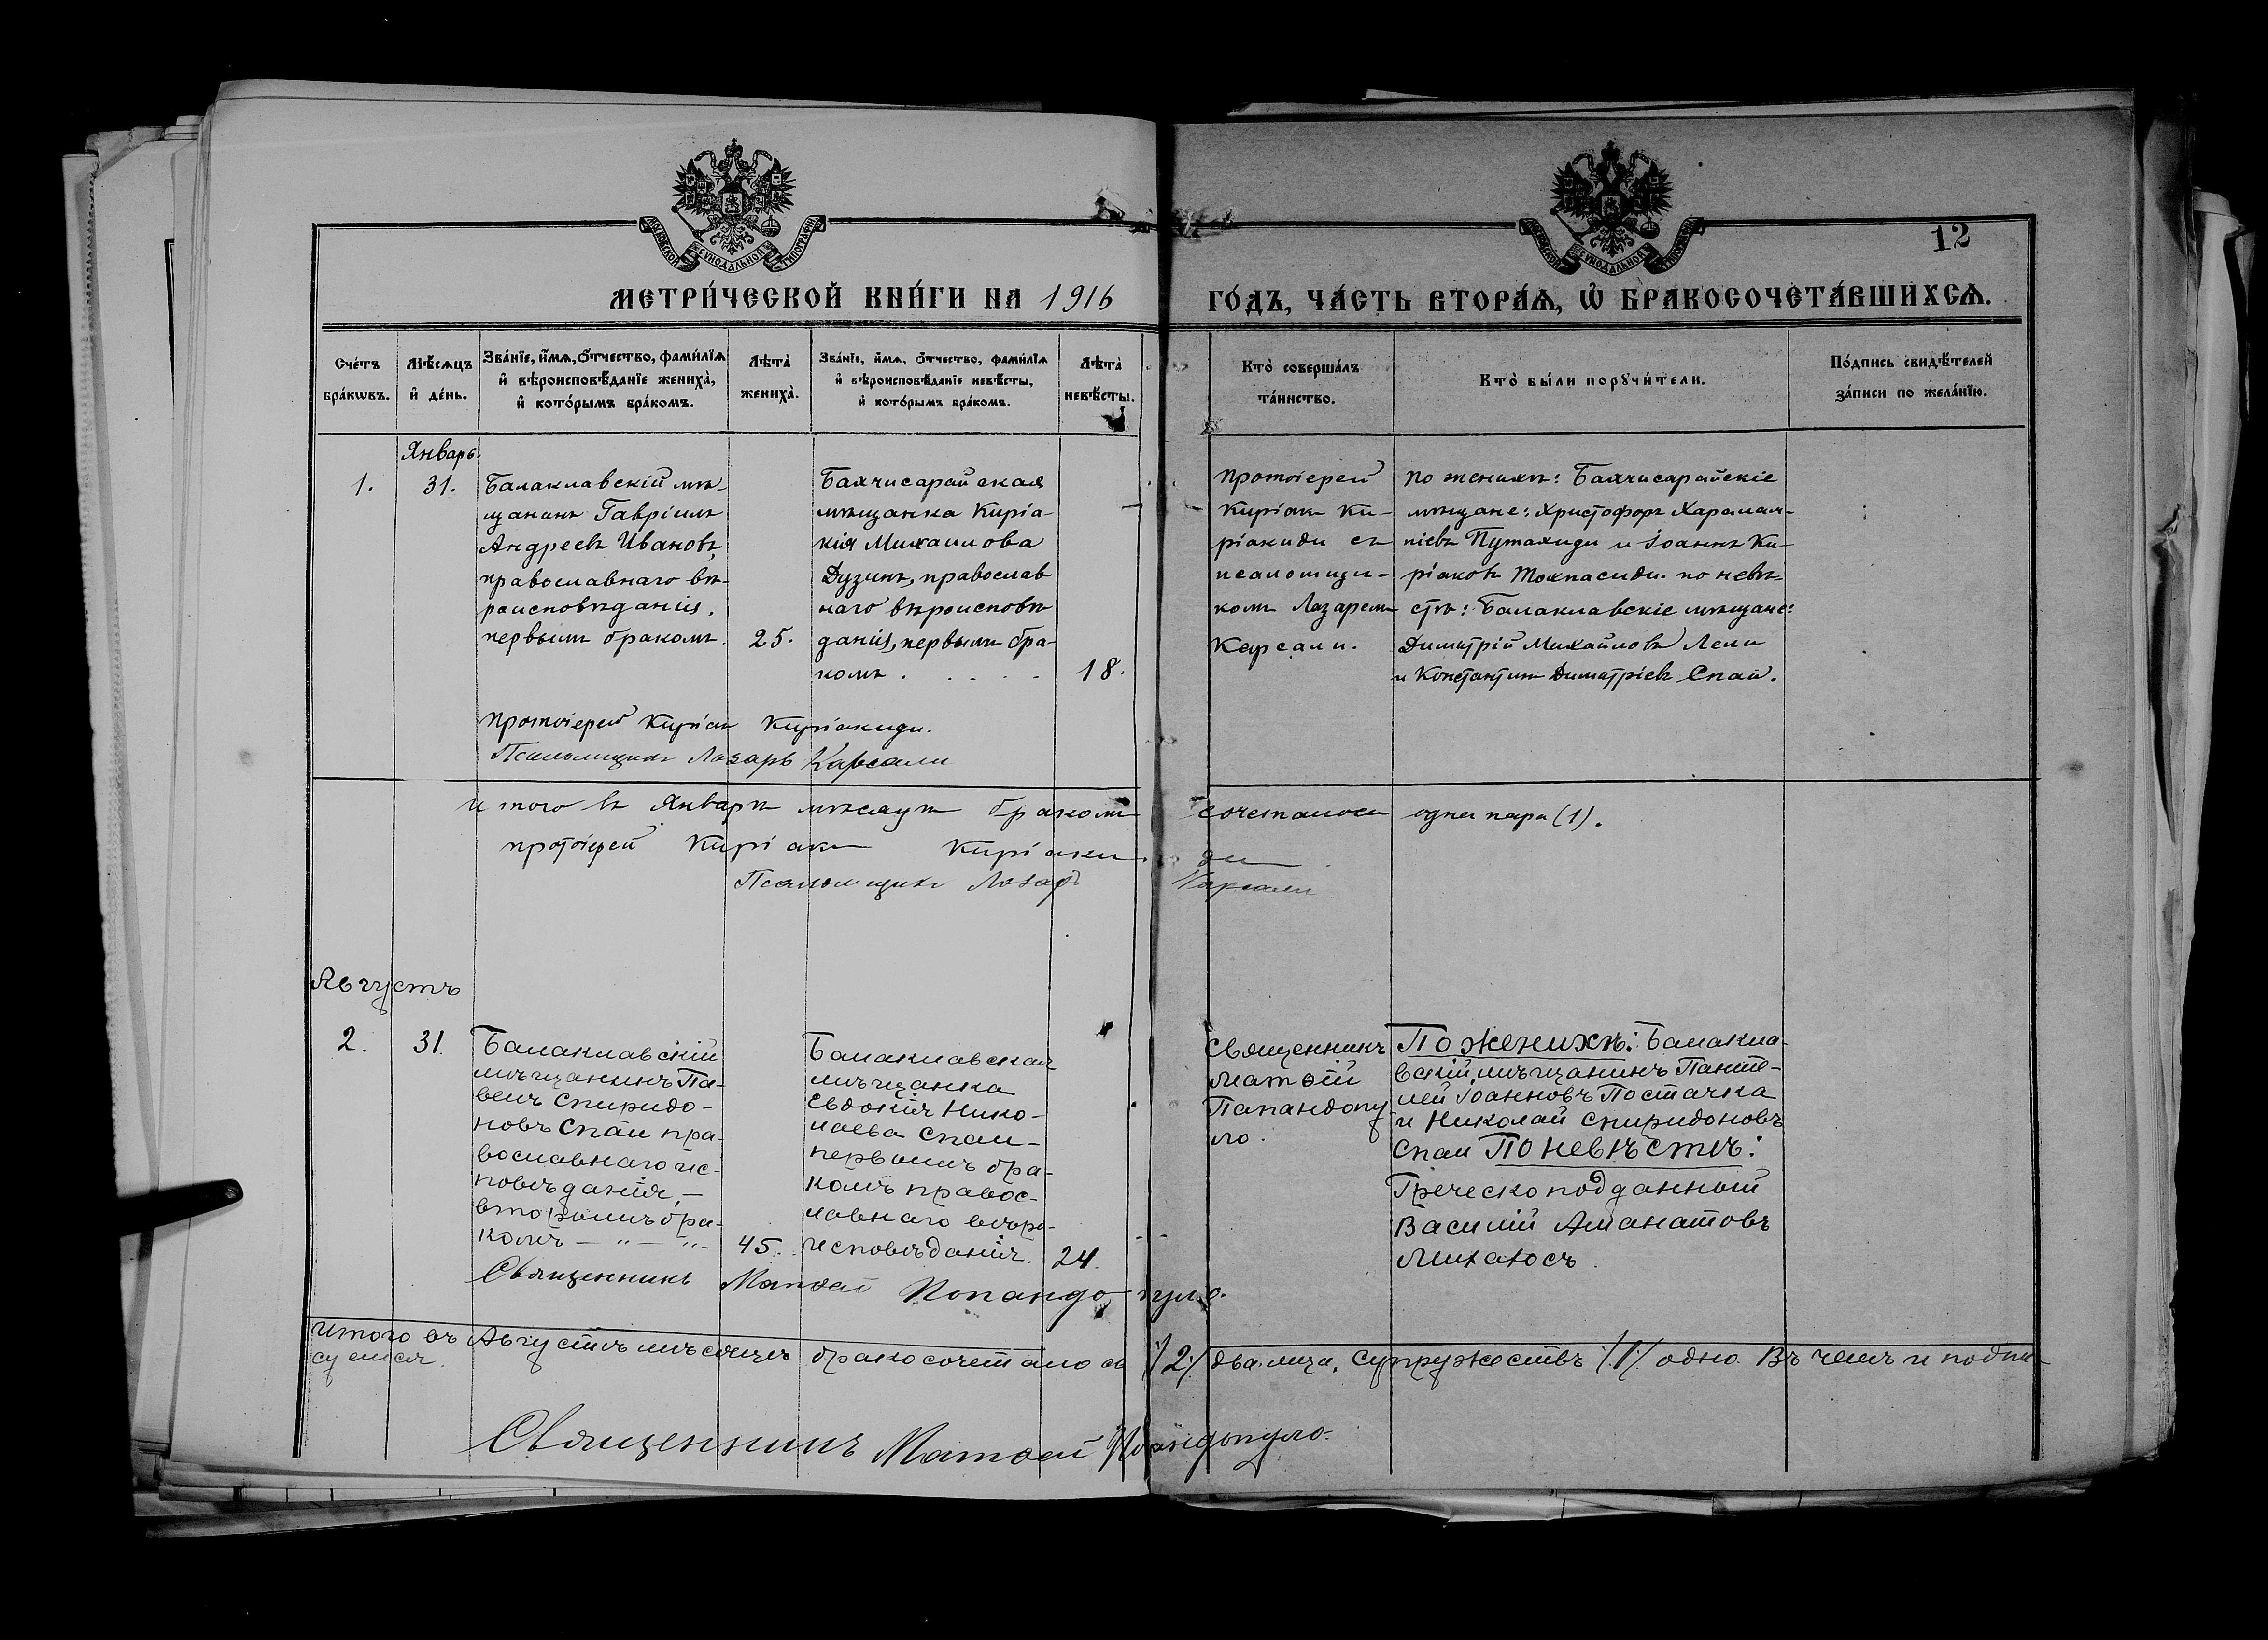 МОСКОВСКОЙ СѴНОДАЛЬНОЙ ТИПОГРАФІИ
МОСКОВСКОЙ СѴНОДАЛЬНОЙ ТИПОГРАФІИ
12
МЕТРИ́ЧЕСКОЙ КНИ́ГИ НА 1916
ГО́ДЪ, ЧА́СТЬ ВТОРА́Ѧ, Ѽ БРАКОСОЧЕТА́ВШИХСѦ.
Сче́тъ
бра́кѡвъ.
Мѣ́сѧцъ
и҆ де́нь.
Зва́нїе, и҆́мѧ, ѻ҆́тчество, фами́лїѧ
и҆ вѣроисповѣ́данїе жениха̀,
и҆ кото́рымъ бра́комъ.
Лѣта̀
жениха̀.
Зва́нїе, и҆́мѧ, ѻ҆́тчество, фами́лїѧ
и҆ вѣроисповѣ́данїе невѣ́сты,
и҆ кото́рымъ бра́комъ.
Лѣта̀
невѣ́сты.
Кто̀ соверша́лъ
та́инство.
Кто̀ бы́ли порꙋчи́тели.
По́дпись свидѣ́телей
за́писи по жела́нїю.
Январь
1.
31.
Балаклавскій мѣ-
щанинъ Гавріилъ
Андреевъ Ивановъ,
православнаго вѣ-
роисповѣданія,
первымъ бракомъ.
25.
Бахчисарайская
мѣщанка Киріа-
кія Михаилова
Дузинъ, православ
наго вѣроисповѣ
данія, первымъ бра-
комъ . . . . .
18.
Протоіерей
Киріакъ Ки-
ріакиди съ
псаломщи-
комъ Лазаремъ
Карсали.
По женихѣ: Бахчисарайскіе
мѣщане: Христофоръ Харалам-
піевъ Путахиди и Іоаннъ Ки-
ріаковъ Тохпасиди. по невѣ-
стѣ: Балаклавскіе мѣщане:
Димитрій Михайловъ Лели
и Константинъ Димитріевъ Спаи.
Протоіерей Киріакъ Киріакиди.
Псаломщикъ Лазарь Карсали
Итого въ Январѣ мѣсяцѣ бракомъ сочеталось одна пара (1).
протоіерей Киріакъ Киріакиди
Псаломщикъ Лазарь Карсали
Августъ
2.
31.
Балаклавскій
мѣщанинъ Па-
велъ Спиридо-
новъ Спаи пра-
вославнаго ис-
повѣданія,-
вторымъ бра-
комъ — " — " -
45.
Балаклавская
мѣщанка
Евдокія Нико-
лаева Спаи-
первымъ бра-
комъ правос-
лавнаго вѣро-
исповѣданія.
24.
Священникъ
Матѳій
Папандопу
ло.
По женихѣ: Балакла-
вскій мѣщанинъ Панте-
лей Іоанновъ Постачка
и Николай Спиридоновъ
Спаи По невѣстѣ:
Греческоподданный
Василій Аманатовъ
Михаюсъ
Священникъ Матѳей Попандопуло.
Итого въ Августѣ мѣсяцѣ бракосочеталось /2/ два лица. Супружествъ /1/ одно. Въ чемъ и подпи-
суемся.
Священникъ Матѳей Попандопуло.